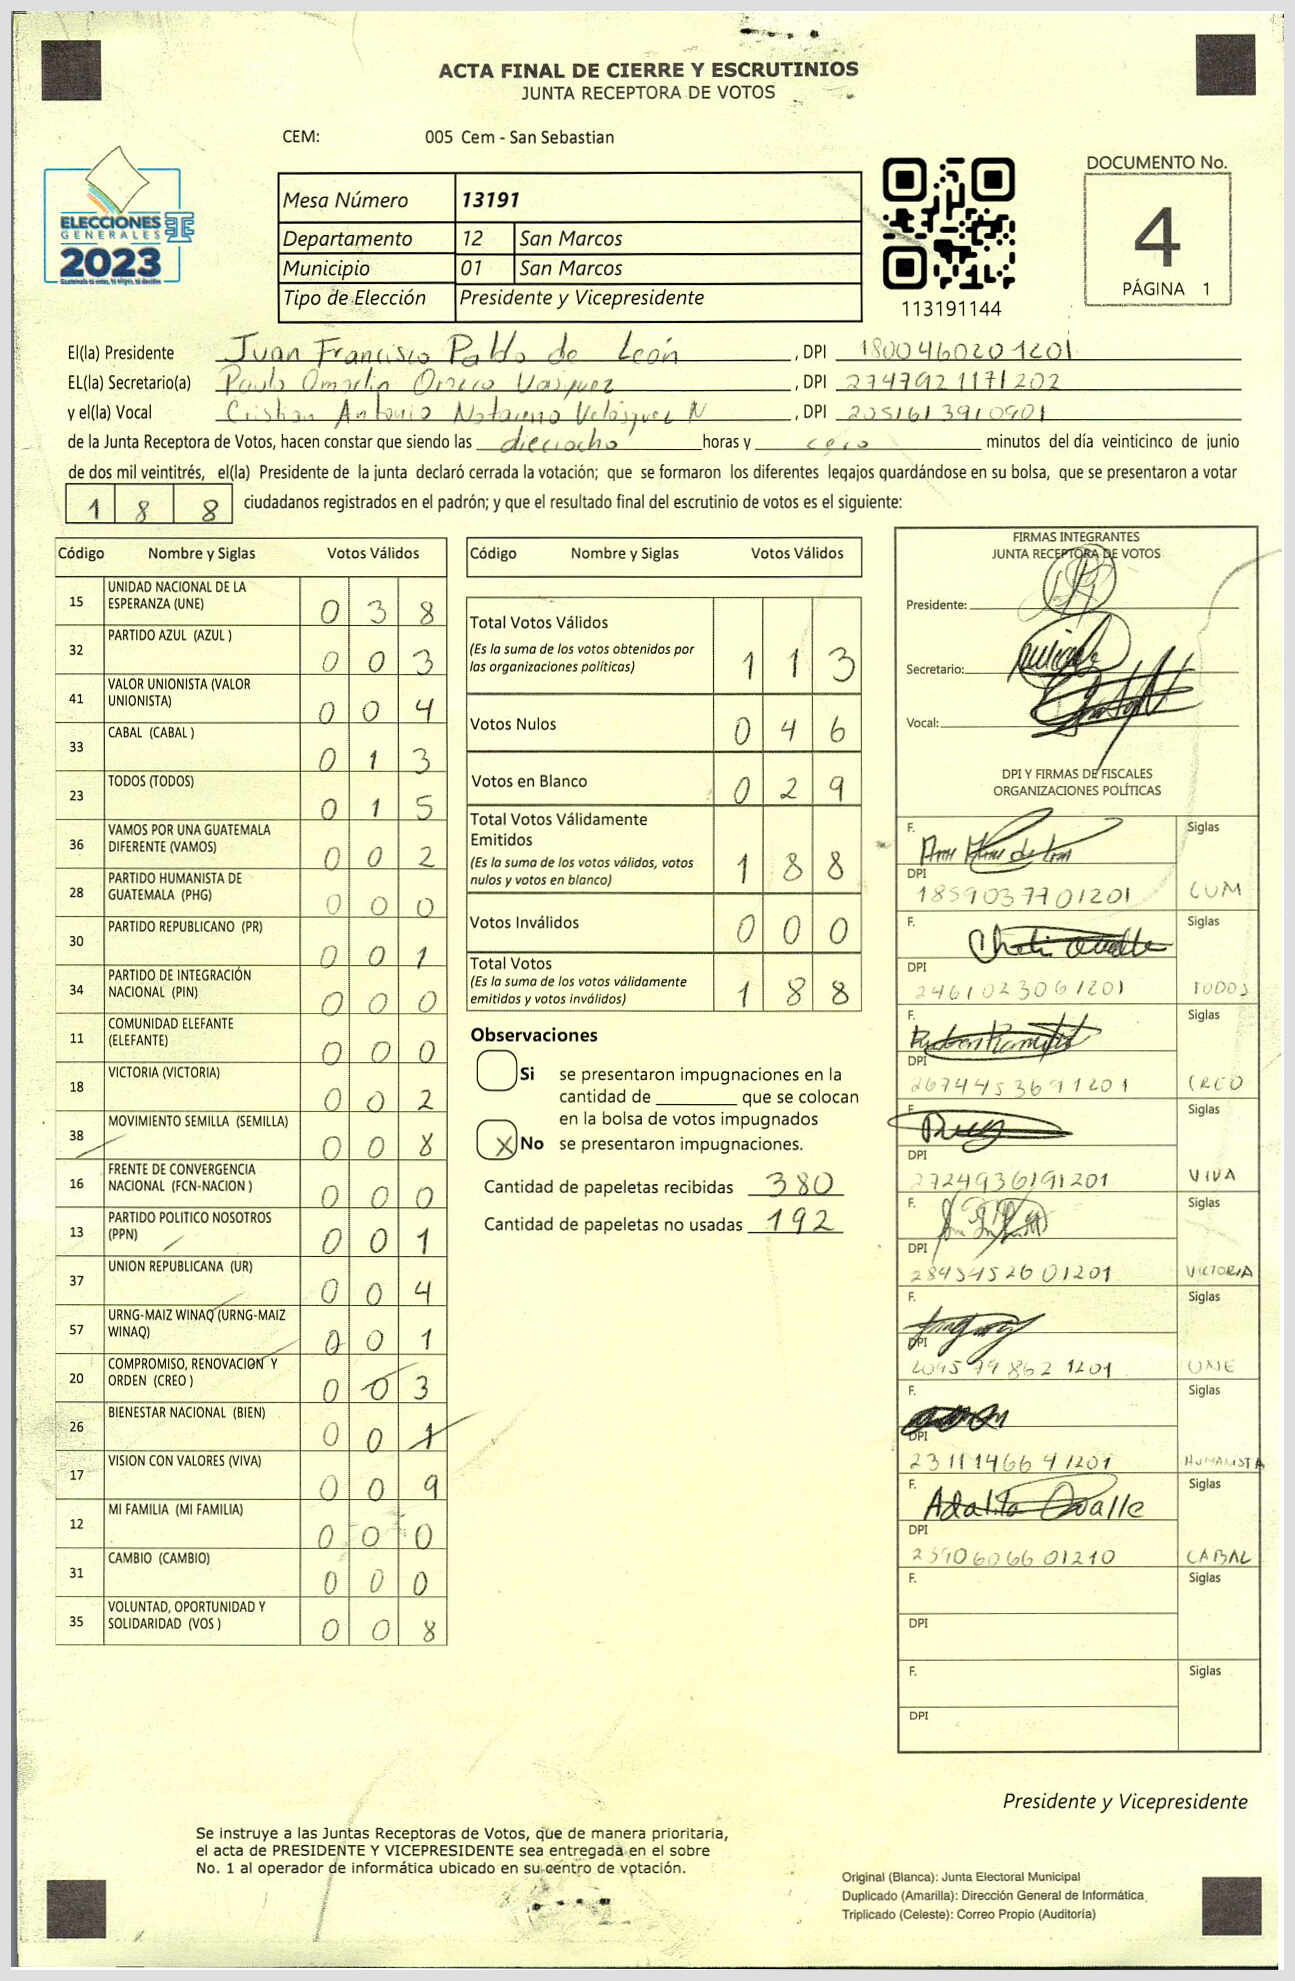 ACTA FINAL DE CIERRE Y ESCRUTINIOS
JUNTA RECEPTORA DE VOTOS
CEM: 005 Cem - San Sebastian
ELECCIONES
GENERALES
2023
Mesa Número 13191
Departamento 12 San Marcos
Municipio 01 San Marcos
Tipo de Elección Presidente y Vicepresidente
113191144
DOCUMENTO No.
4
PÁGINA 1
El(la) Presidente Juan Francisco Pablo de León , DPI 1800460201201
EL(la) Secretario(a) Vasquez , DPI 2747921171202
y el(la) Vocal Cristian Antonio Velásquez N , DPI 2051613910901
de la Junta Receptora de Votos, hacen constar que siendo las dieciocho horas y cero minutos del día veinticinco de junio
de dos mil veintitrés, el(la) Presidente de la junta declaró cerrada la votación; que se formaron los diferentes legajos quardándose en su bolsa, que se presentaron a votar
1 8 8 ciudadanos registrados en el padrón; y que el resultado final del escrutinio de votos es el siguiente:
Código Nombre y Siglas Votos Válidos
15 UNIDAD NACIONAL DE LA ESPERANZA (UNE) 0 3 8
32 PARTIDO AZUL (AZUL ) 0 0 3
41 VALOR UNIONISTA (VALOR UNIONISTA) 0 0 4
33 CABAL (CABAL ) 0 1 3
23 TODOS (TODOS) 0 1 5
36 VAMOS POR UNA GUATEMALA DIFERENTE (VAMOS) 0 0 2
28 PARTIDO HUMANISTA DE GUATEMALA (PHG) 0 0 0
30 PARTIDO REPUBLICANO (PR) 0 0 1
34 PARTIDO DE INTEGRACIÓN NACIONAL (PIN) 0 0 0
11 COMUNIDAD ELEFANTE (ELEFANTE) 0 0 0
18 VICTORIA (VICTORIA) 0 0 2
38 MOVIMIENTO SEMILLA (SEMILLA) 0 0 8
16 FRENTE DE CONVERGENCIA NACIONAL (FCN-NACION ) 0 0 0
13 PARTIDO POLITICO NOSOTROS (PPN) 0 0 1
37 UNION REPUBLICANA (UR) 0 0 4
57 URNG-MAIZ WINAQ (URNG-MAIZ WINAQ) 0 0 1
20 COMPROMISO, RENOVACION Y ORDEN (CREO ) 0 0 3
26 BIENESTAR NACIONAL (BIEN) 0 0 1
17 VISION CON VALORES (VIVA) 0 0 9
12 MI FAMILIA (MI FAMILIA) 0 0 0
31 CAMBIO (CAMBIO) 0 0 0
35 VOLUNTAD, OPORTUNIDAD Y SOLIDARIDAD (VOS ) 0 0 8
Código Nombre y Siglas Votos Válidos
Total Votos Válidos
(Es la suma de los votos obtenidos por
las organizaciones políticas) 1 1 3
Votos Nulos 0 4 6
Votos en Blanco 0 2 9
Total Votos Válidamente
Emitidos
(Es la suma de los votos válidos, votos
nulos y votos en blanco) 1 8 8
Votos Inválidos 0 0 0
Total Votos
(Es la suma de los votos válidamente
emitidos y votos inválidos) 1 8 8
Observaciones
Si se presentaron impugnaciones en la
cantidad de ________ que se colocan
en la bolsa de votos impugnados
X No se presentaron impugnaciones.
Cantidad de papeletas recibidas 380
Cantidad de papeletas no usadas 192
FIRMAS INTEGRANTES
JUNTA RECEPTORA DE VOTOS
Presidente:
Secretario:
Vocal:
DPI Y FIRMAS DE FISCALES
ORGANIZACIONES POLÍTICAS
F. Siglas
DPI
1859037701201 CUM
F. Siglas
DPI
2461023061201 TODOS
F. Siglas
DPI
2674453691201 CREO
F. Siglas
DPI
2724936191201 VIVA
F. Siglas
DPI
2845452601201 VICTORIA
F. Siglas
DPI
UNE
F. Siglas
DPI
2311146641201 HUMANISTA
F. Adalita Ovalle Siglas
DPI
2590606601210 CABAL
F. Siglas
DPI
F. Siglas
DPI
Presidente y Vicepresidente
Se instruye a las Juntas Receptoras de Votos, que de manera prioritaria,
el acta de PRESIDENTE Y VICEPRESIDENTE sea entregada en el sobre
No. 1 al operador de informática ubicado en su centro de votación.
Original (Blanca): Junta Electoral Municipal
Duplicado (Amarilla): Dirección General de Informática
Triplicado (Celeste): Correo Propio (Auditoría)